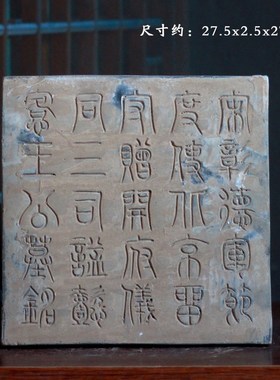 尺寸约：27.5x2.5x2
宋彰德軍節
度使北京留
守贈開府儀
同三司謚懿
愙王公墓銘